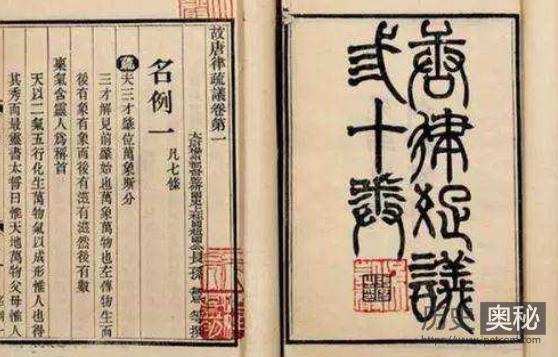 唐律疏議
弎十卷
故唐律疏議卷第一
長孫無忌等撰
名例一 凡七條
疏 夫三才肇位萬象斯分
三才解見前肇始也萬象萬物也左傳物生而
後有象有象而後有滋有滋然後有數
稟氣含靈人爲稱首
天以二氣五行化生萬物氣以成形惟人也得
其秀而最靈書太誓曰惟天地萬物父母惟人
历史奥秘